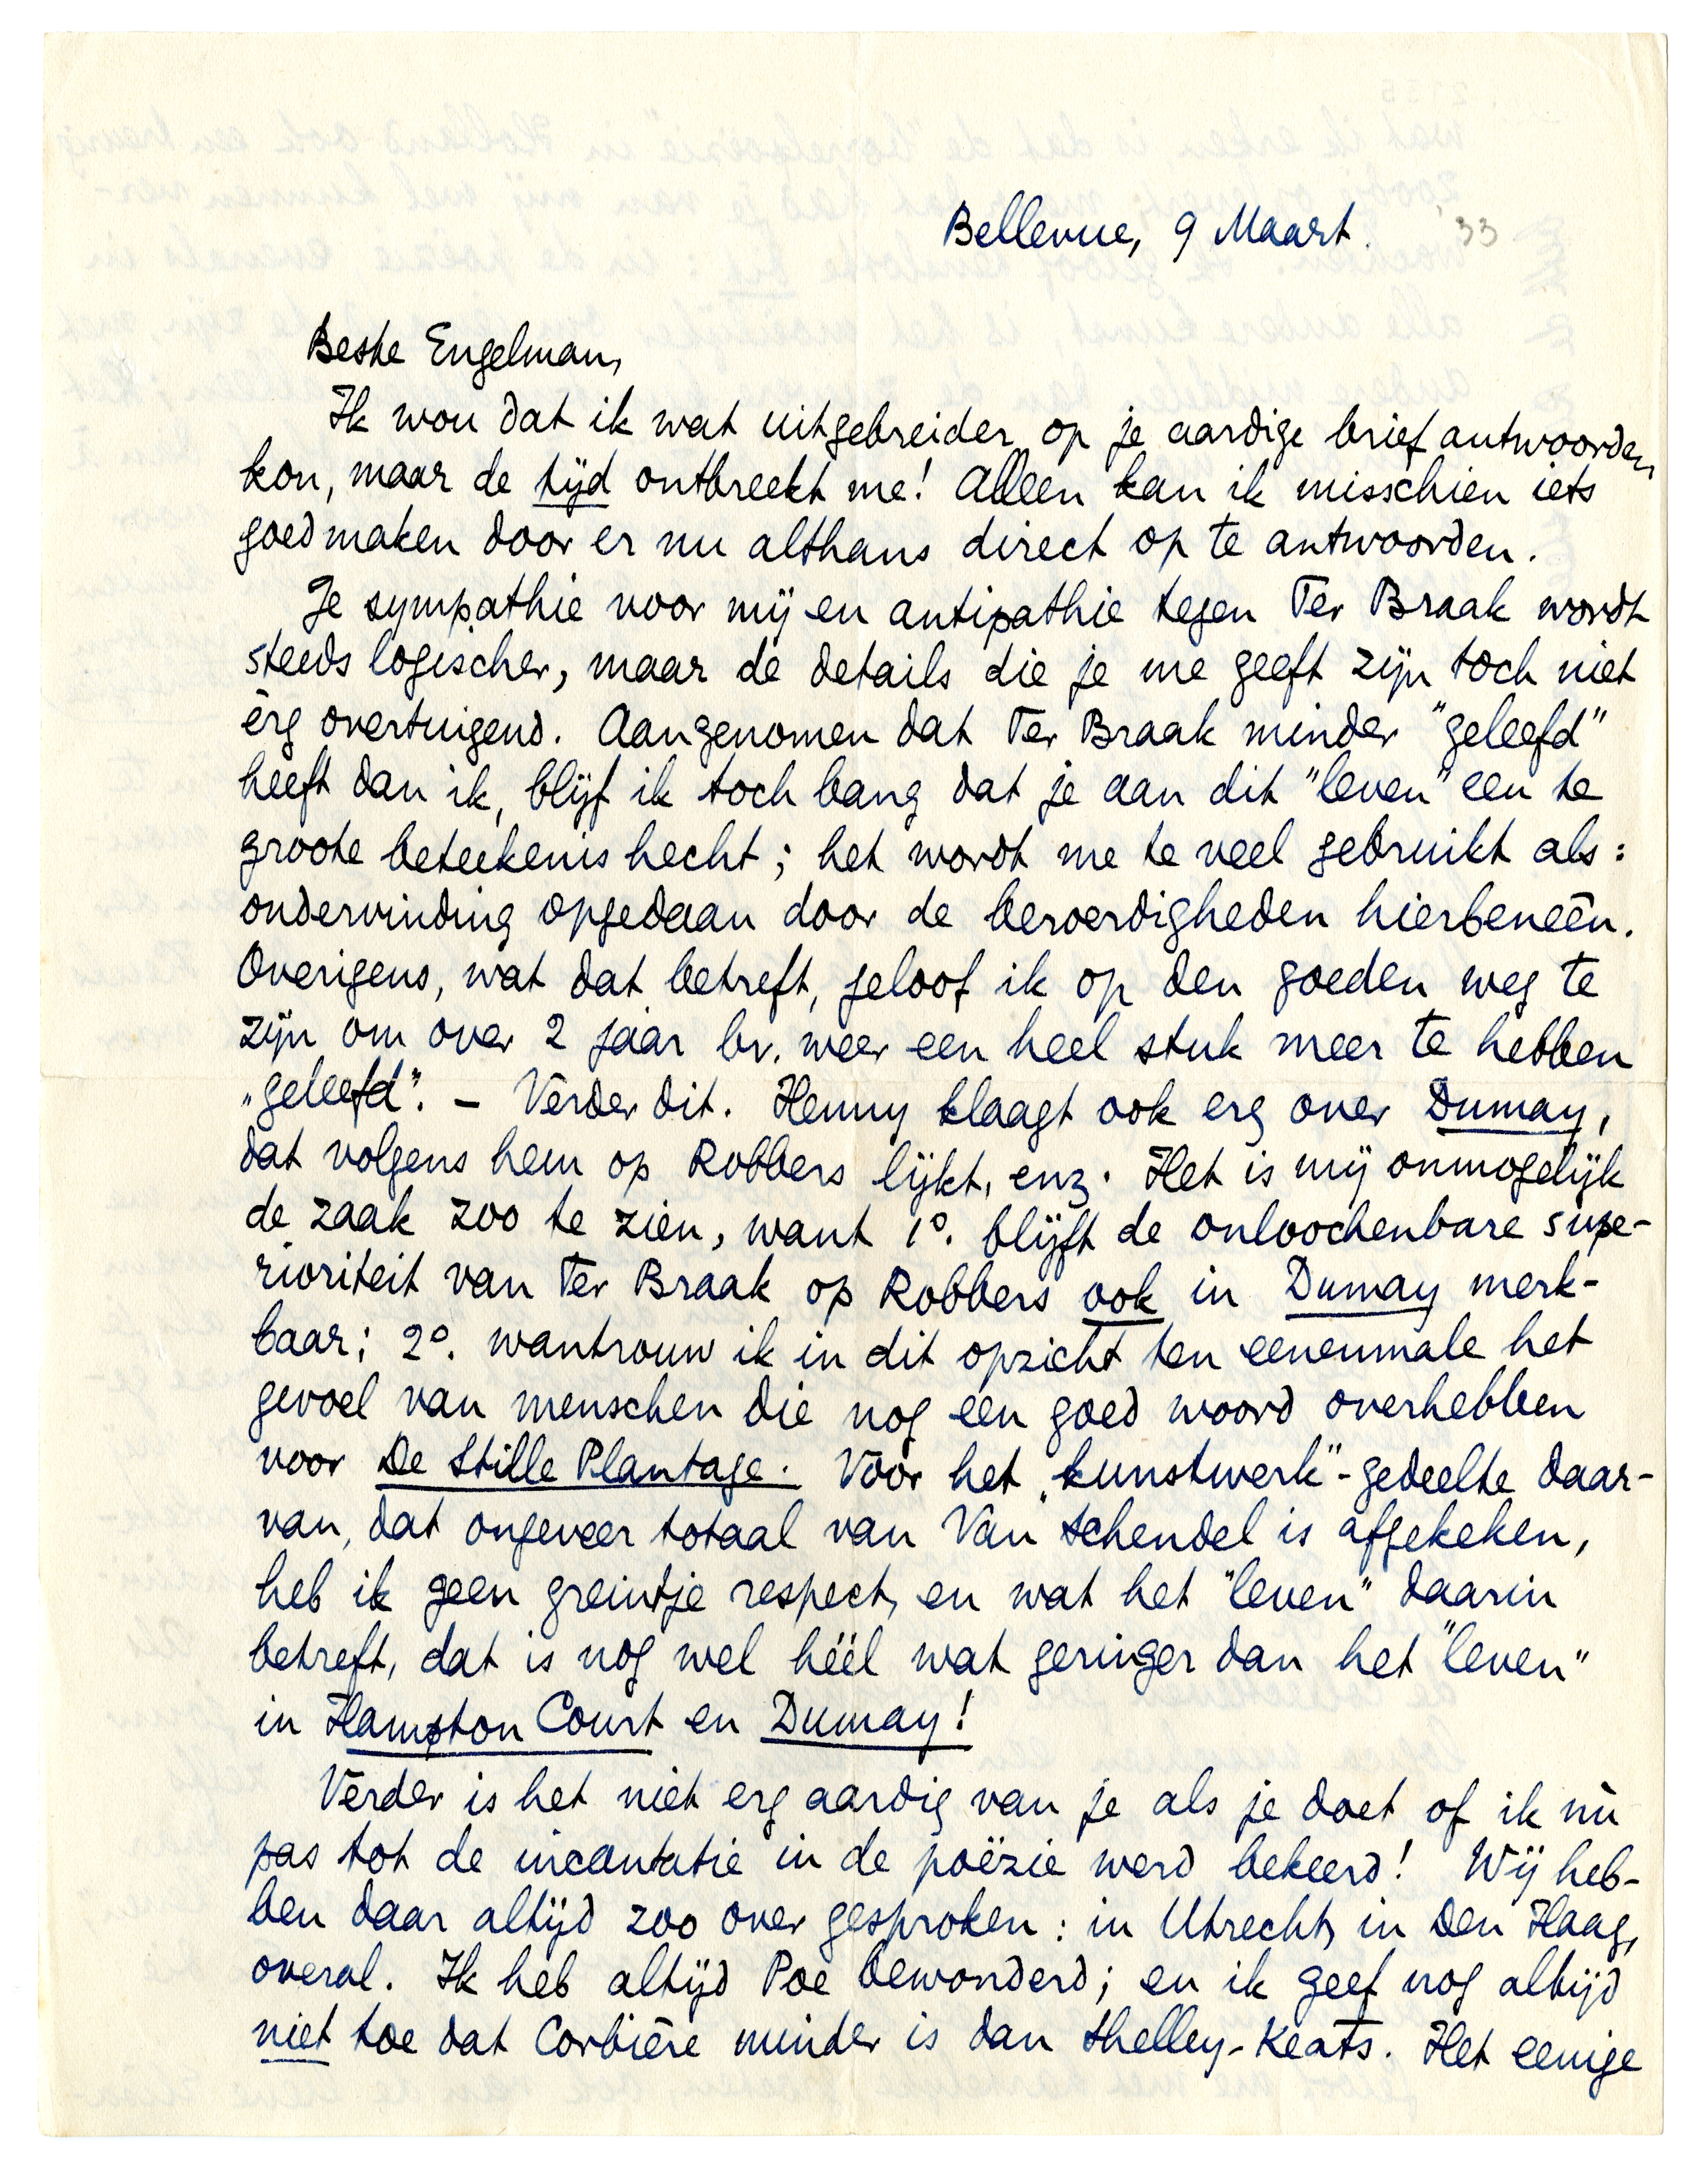 Bellevue, 9 Maart. '33
Beste Engelman,
Ik wou dat ik wat uitgebreider op je aardige brief antwoorden
kon, maar de tijd ontbreekt me! Alleen kan ik misschien iets
goedmaken door er nu althans direct op te antwoorden.
Je sympathie voor mij en antipathie tegen Ter Braak wordt
steeds logischer, maar de details die je me geeft zijn toch niet
èrg overtuigend. Aangenomen dat Ter Braak minder "geleefd"
heeft dan ik, blijf ik toch bang dat je aan dit "leven" een te
groote beteekenis hecht; het wordt me te veel gebruikt als:
ondervinding opgedaan door de beroerdigheden hierbeneên.
Overigens, wat dat betreft, geloof ik op den goeden weg te
zijn om over 2 jaar bv. weer een heel stuk meer te hebben
„geleefd". – Verder dit. Henny klaagt ook erg over Dumay,
dat volgens hem op Robbers lijkt, enz. Het is mij onmogelijk
de zaak zoo te zien, want 1º. blijft de onloochenbare supe-
rioriteit van Ter Braak op Robbers ook in Dumay merk-
baar; 2º. wantrouw ik in dit opzicht ten eenenmale het
gevoel van menschen die nog een goed woord overhebben
voor De Stille Plantage. Vóór het „kunstwerk"-gedeelte daar-
van, dat ongeveer totaal van Van Schendel is afgekeken,
heb ik geen greintje respect, en wat het "leven" daarin
betreft, dat is nog wel héél wat geringer dan het "leven"
in Hampton Court en Dumay!
Verder is het niet erg aardig van je als je doet of ik nù
pas tot de incantatie in de poëzie werd bekeerd! Wij heb-
ben daar altijd zoo over gesproken: in Utrecht, in Den Haag,
overal. Ik heb altijd Poe bewonderd; en ik geef nog altijd
niet toe dat Corbière minder is dan Shelley-Keats. Het eenige